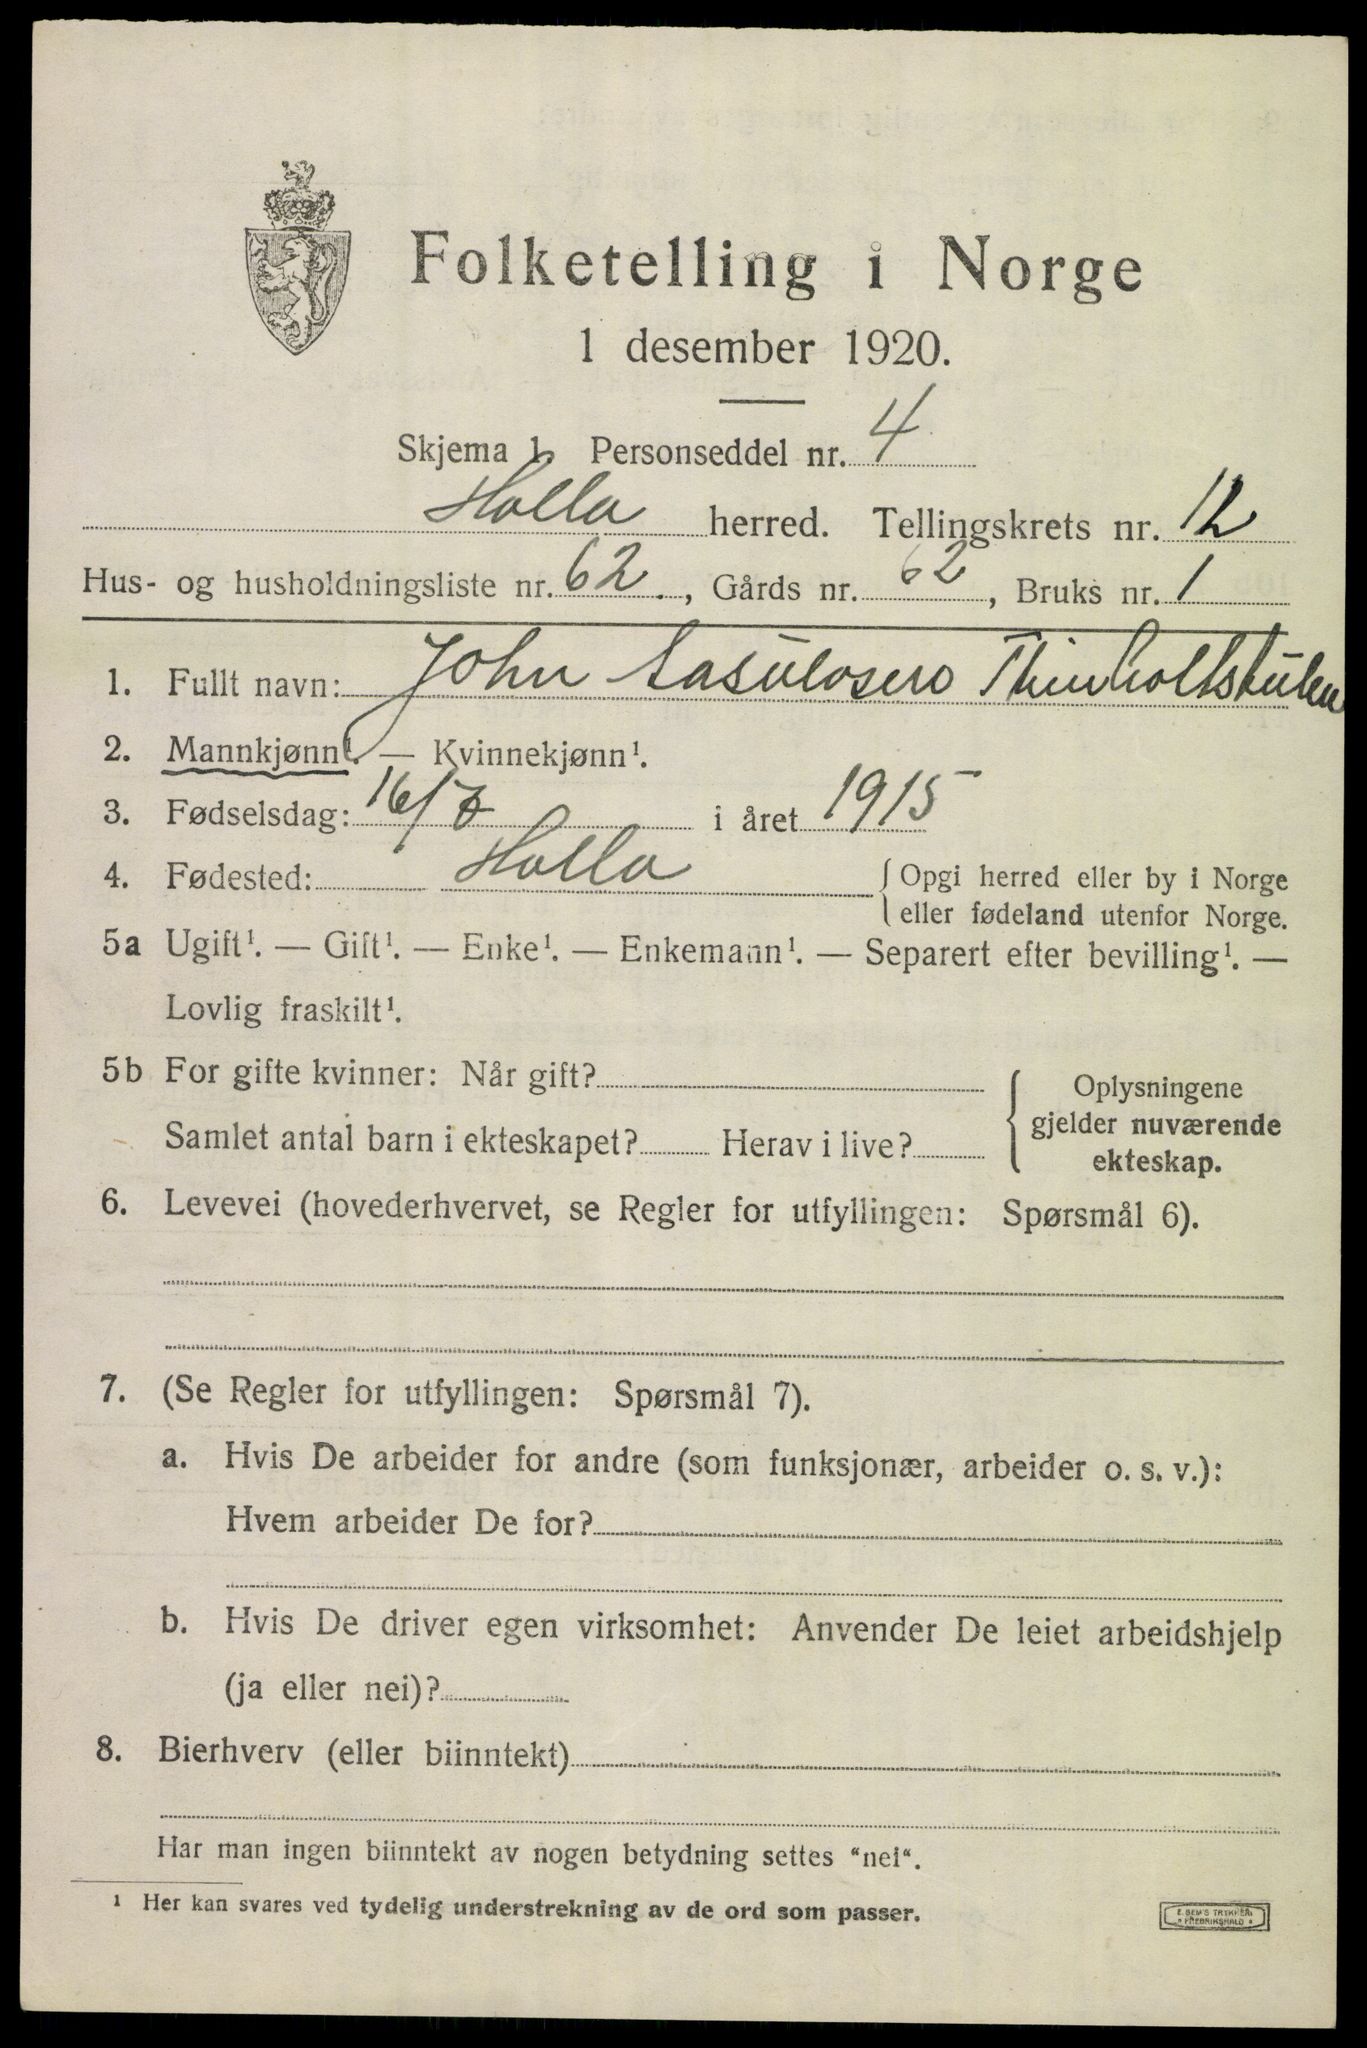 Folketelling i Norge
1 desember 1920.
Skjema 1. Personseddel nr. 4
Holla herred. Tellingskrets nr. 12
Hus- og husholdningsliste nr. 62., Gårds nr. 62, Bruks nr. 1
1. Fullt navn: John
2. Mannkjønn¹. — Kvinnekjønn¹.
3. Fødselsdag: 16/7 i året 1915
4. Fødested: Holla { Opgi herred eller by i Norge
eller fødeland utenfor Norge.
5a Ugift¹. — Gift¹. — Enke¹. — Enkemann¹. — Separert efter bevilling¹. —
Lovlig fraskilt¹.
5b For gifte kvinner: Når gift?
Samlet antal barn i ekteskapet? Herav i live?
{ Oplysningene
gjelder nuværende
ekteskap.
6. Levevei (hovederhvervet, se Regler for utfyllingen: Spørsmål 6).
7. (Se Regler for utfyllingen: Spørsmål 7).
a. Hvis De arbeider for andre (som funksjonær, arbeider o. s. v.):
Hvem arbeider De for?
b. Hvis De driver egen virksomhet: Anvender De leiet arbeidshjelp
(ja eller nei)?
8. Bierhverv (eller biinntekt)
Har man ingen biinntekt av nogen betydning settes "nei".
¹ Her kan svares ved tydelig understrekning av de ord som passer.
E. SEM'S TRYKKERI
FREDRIKSHALD